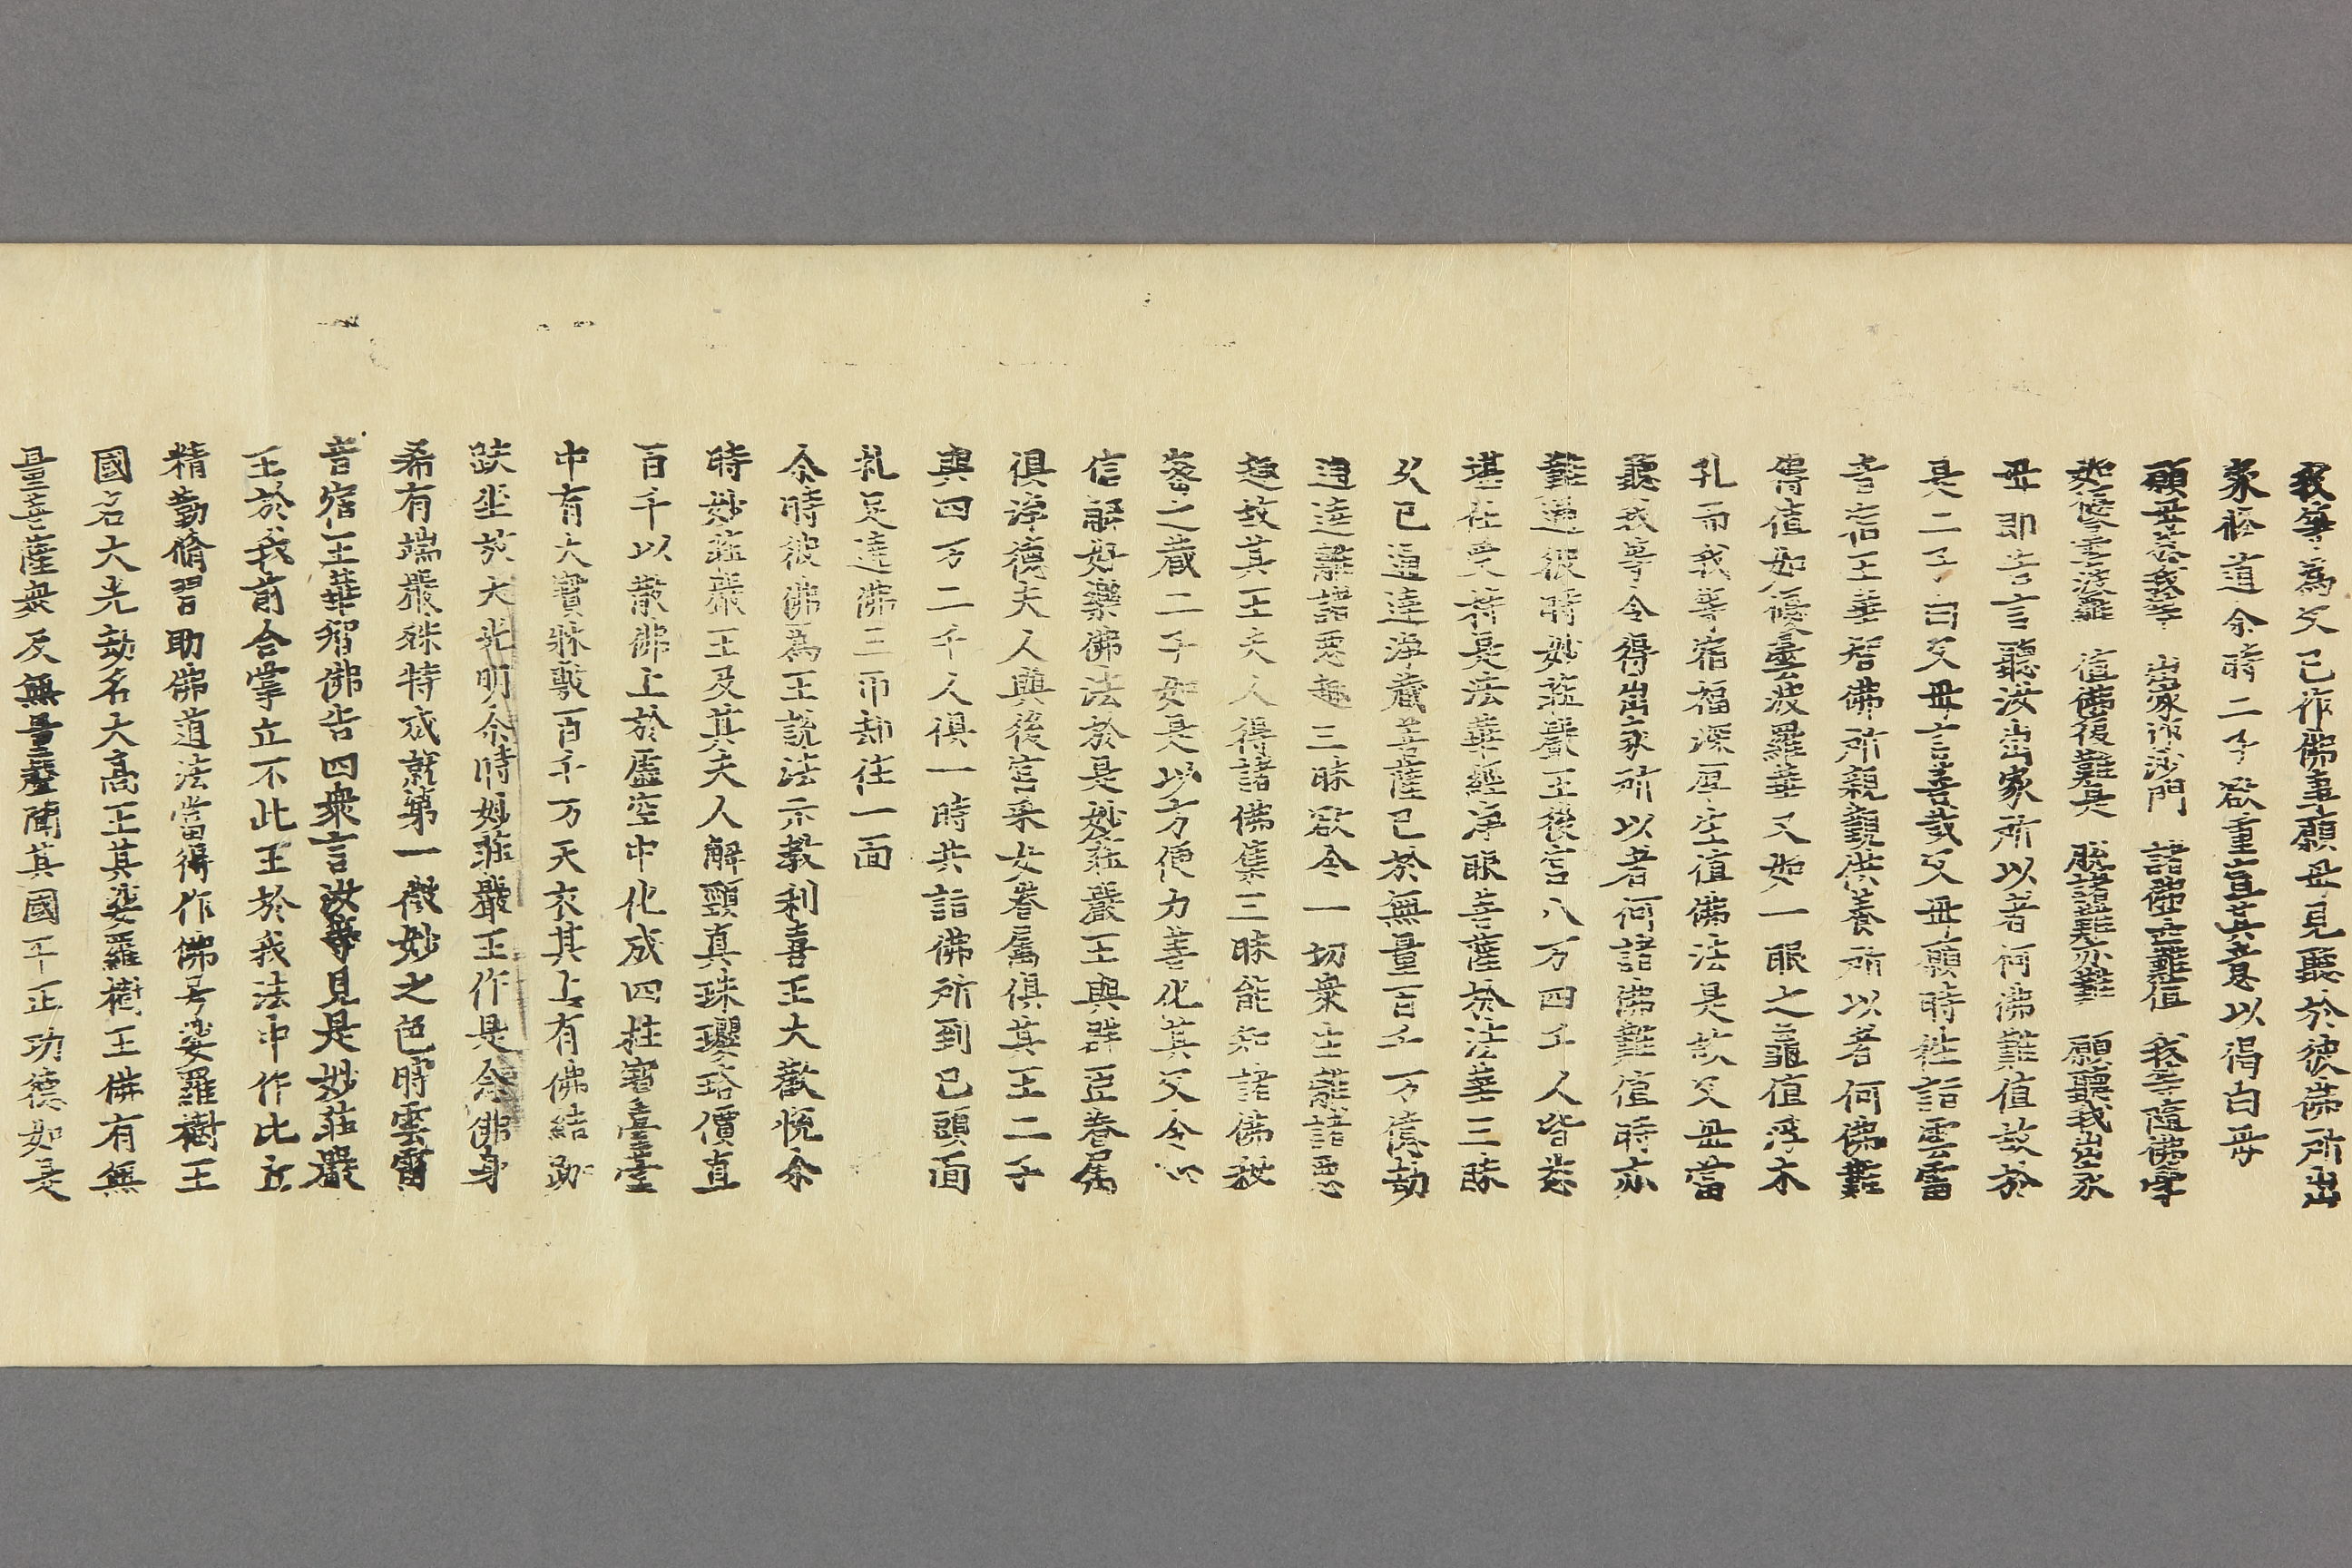 我等為父已作佛事願母見聽於彼佛所出
家修道尒時二子欲重宣其意以偈白母
願母放我等　出家作沙門　諸佛甚難值　我等隨佛學
如優曇波羅　值佛復難是　脫諸難亦難　願聽我出家
母即告言聽汝出家所以者何佛難值故於
是二子白父母言善哉父母願時往詣雲雷
音宿王華智佛所親覲供養所以者何佛難
得值如優曇波羅華又如一眼之龜值浮木
孔而我等宿福深厚生值佛法是故父母當
聽我等令得出家所以者何諸佛難值時亦
難遇彼時妙莊嚴王後宮八万四千人皆悉
堪任受持是法華經淨眼菩薩於法華三昧
久已通達淨藏菩薩已於無量百千万億劫
通達離諸惡趣三昧欲令一切衆生離諸惡
趣故其王夫人得諸佛集三昧能知諸佛祕
密之藏二子如是以方便力善化其父令心
信解好樂佛法於是妙莊嚴王與群臣眷属
俱淨德夫人與後宮采女眷属俱其王二子
與四万二千人俱一時共詣佛所到已頭面
礼足遶佛三帀却住一面
尒時彼佛為王說法示教利喜王大歡悅尒
時妙莊嚴王及其夫人解頸真珠瓔珞價直
百千以散佛上於虛空中化成四柱寶臺臺
中有大寶牀敷百千万天衣其上有佛結跏
趺坐放大光明尒時妙莊嚴王作是念佛身
希有端嚴殊特成就第一微妙之色時雲雷
音宿王華智佛告四衆言汝等見是妙莊嚴
王於我前合掌立不此王於我法中作比丘
精勤脩習助佛道法當得作佛号娑羅樹王
國名大光劫名大高王其娑羅樹王佛有無
量菩薩衆及無量聲聞其國平正功德如是